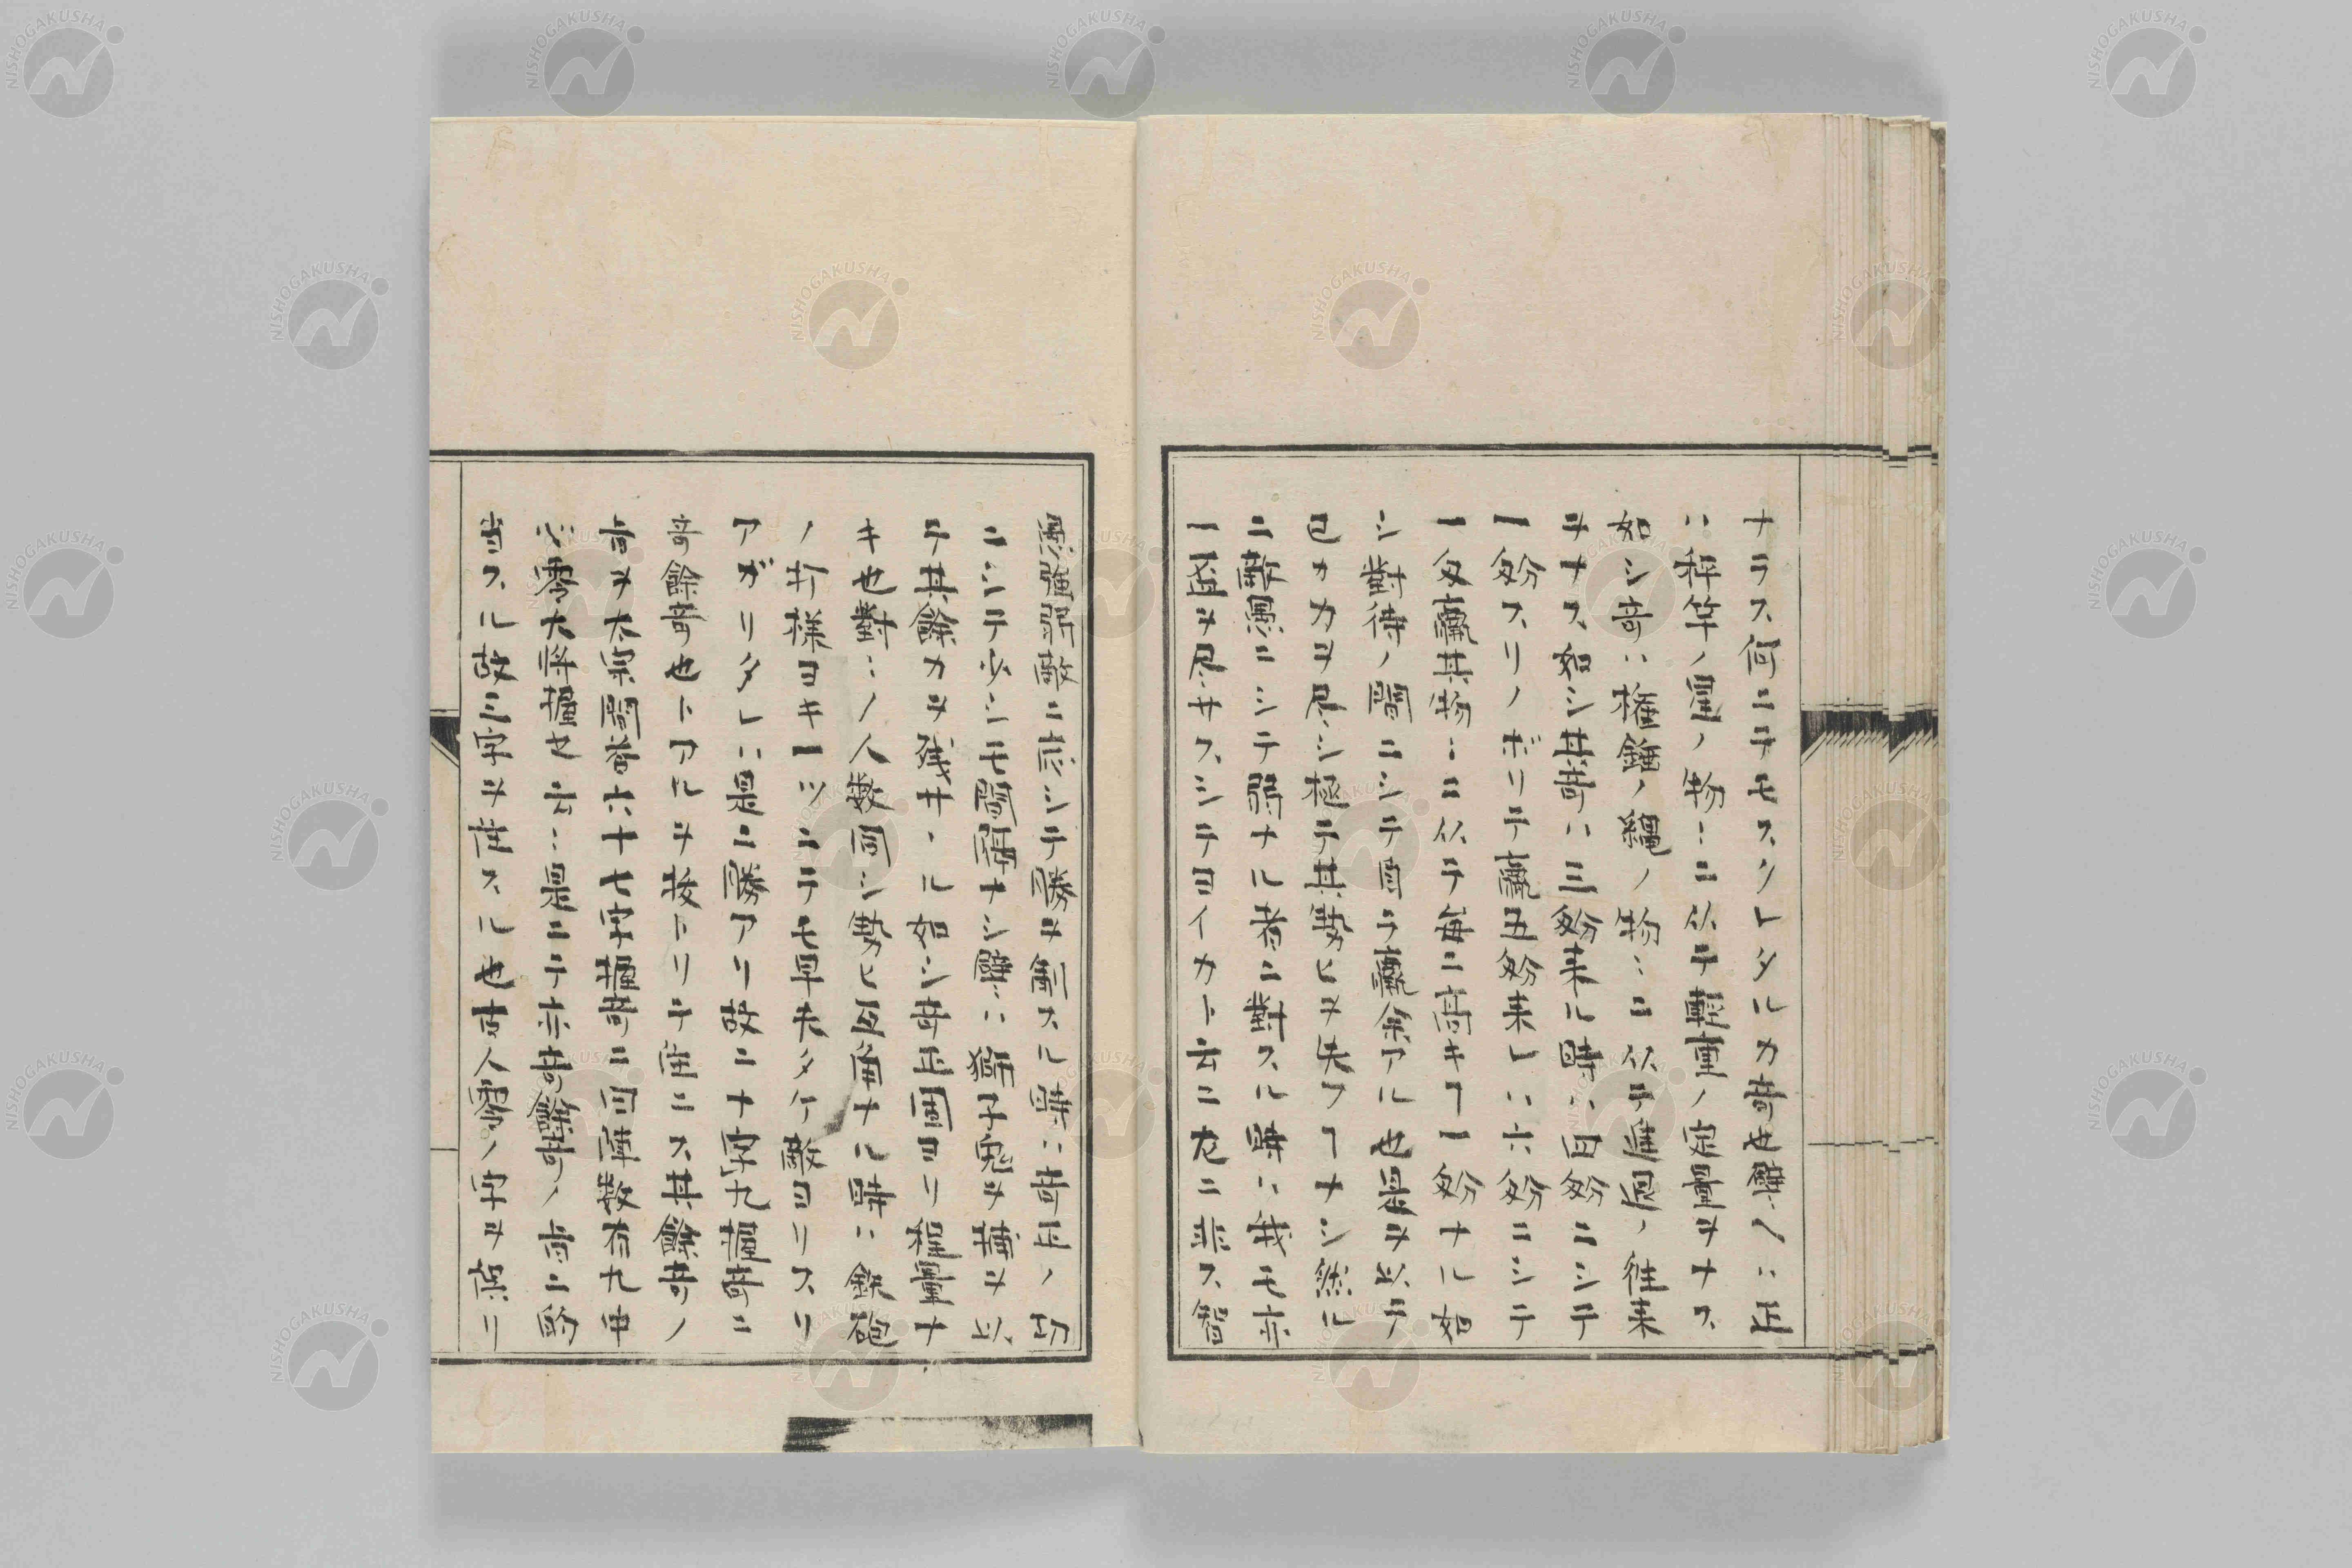 ナラス何ニテモスクレタルカ竒也譬ヘハ正
ハ秤竿ノ星ノ物〻ニ从テ輕重ノ定量ヲナス
如シ竒ハ権錘ノ縄ノ物〻ニ从テ進退ノ往来
ヲナス如シ其竒ハ三匁来ル時ハ四匁ニシテ
一匁スリノボリテ贏五匁来レハ六匁ニシテ
一匁贏其物〻ニ从テ毎ニ高キ𪜈一匁ナル如
シ對待ノ間ニシテ自ラ贏余アル也是ヲ以テ
己カカヲ尽シ極テ其勢ヒヲ失フ𪜈ナシ然ル
ニ敵愚ニシテ弱ナル者ニ對スル時ハ我モ亦
一盃ヲ尽サスシテヨイカト云ニ尤ニ非ス智
愚強弱敵ニ応シテ勝ヲ制スル時ハ竒正ノ功
ニシテ少シモ間隔ナシ譬ヘハ獅子兎ヲ搏ヲ以
テ其餘力ヲ残サヽル如シ竒正固ヨリ程量ナ
キ也對〻ノ人数同シ勢ヒ互角ナル時ハ鉄砲
ノ打様ヨキ一ツニテモ早朱タケ敵ヨリスリ
アガリタレハ是ニ勝アリ故ニ十字九握竒ニ
竒餘竒也トアルヲ抜トリテ用ニス其餘竒ノ
竒ヲ大宗問者六十七字握竒ニ曰陣数有九中
心零大将握之云〻是ニテ亦竒餘竒ノ竒ニ的
当スル故三字ヲ用スル也古人零ノ字ヲ誤リ